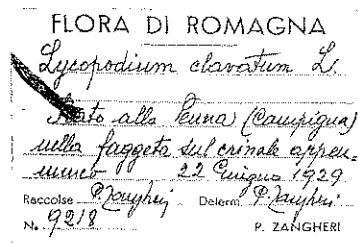 FLORA DI ROMAGNA
Lycopodium clavatum L.
Prato alla Penna (Campigna)
nella faggeta sul crinale appen-
ninico 22 Giugno 1929
Raccolse P. Zangheri Determ. P. Zangheri
N. 9218 P. ZANGHERI